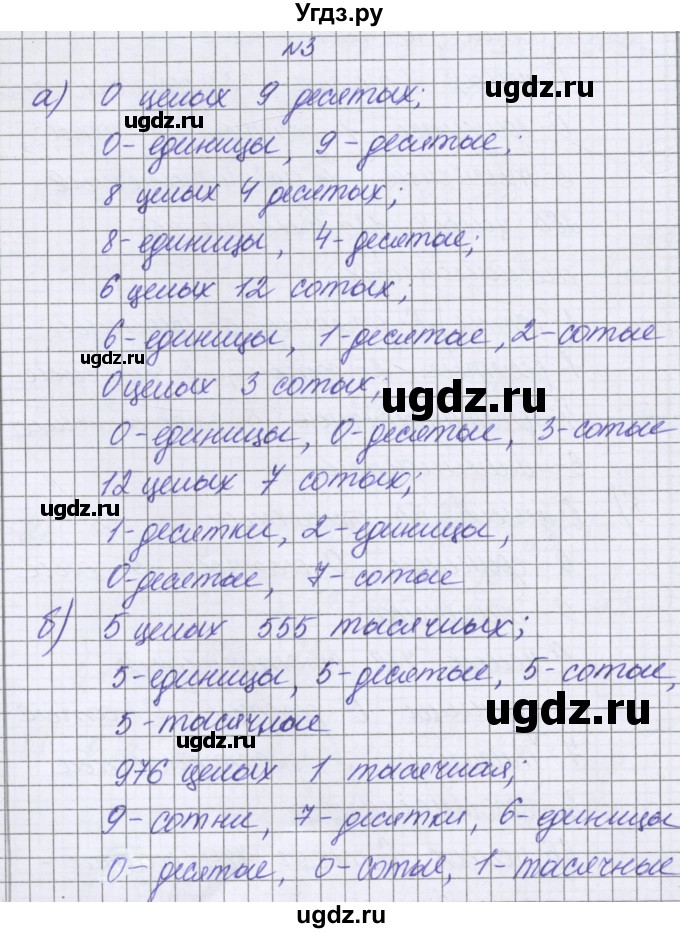 Угдз.ру
№3
а) 0 целых 9 десятых;
ugdz.ru
ugdz.ru
0-единицы, 9-десятые;
8 целых 4 десятых;
8-единицы, 4-десятые;
6 целых 12 сотых;
6-единицы, 1-десятые, 2-сотые
ugdz.ru
0 целых 3 сотых;
ugdz.ru
0-единицы, 0-десятые, 3-сотые
12 целых 7 сотых;
ugdz.ru
1-десятки, 2-единицы,
0-десятые, 7-сотые
б) 5 целых 555 тысячных;
5-единицы, 5-десятые, 5-сотые,
ugdz.ru
5-тысячные
ugdz.ru
976 целых 1 тысячная;
9-сотни, 7-десятки, 6-единицы
0-десятые, 0-сотые, 1-тысячные
ugdz.ru